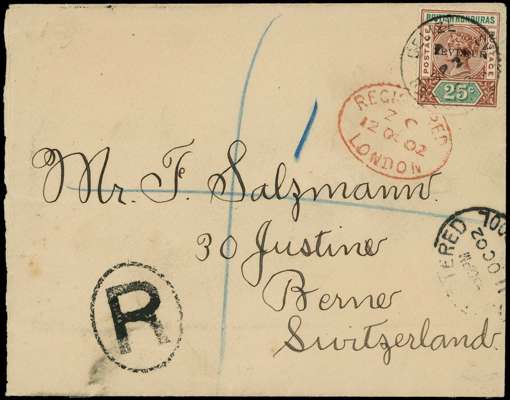 BRITISH HONDURAS
POSTAGE
POSTAGE
REVENUE
25c
BELIZE
REGISTERED
12 OC 02
LONDON
Mr. F. Salzmann
30 Justine
Berne
Switzerland.
R